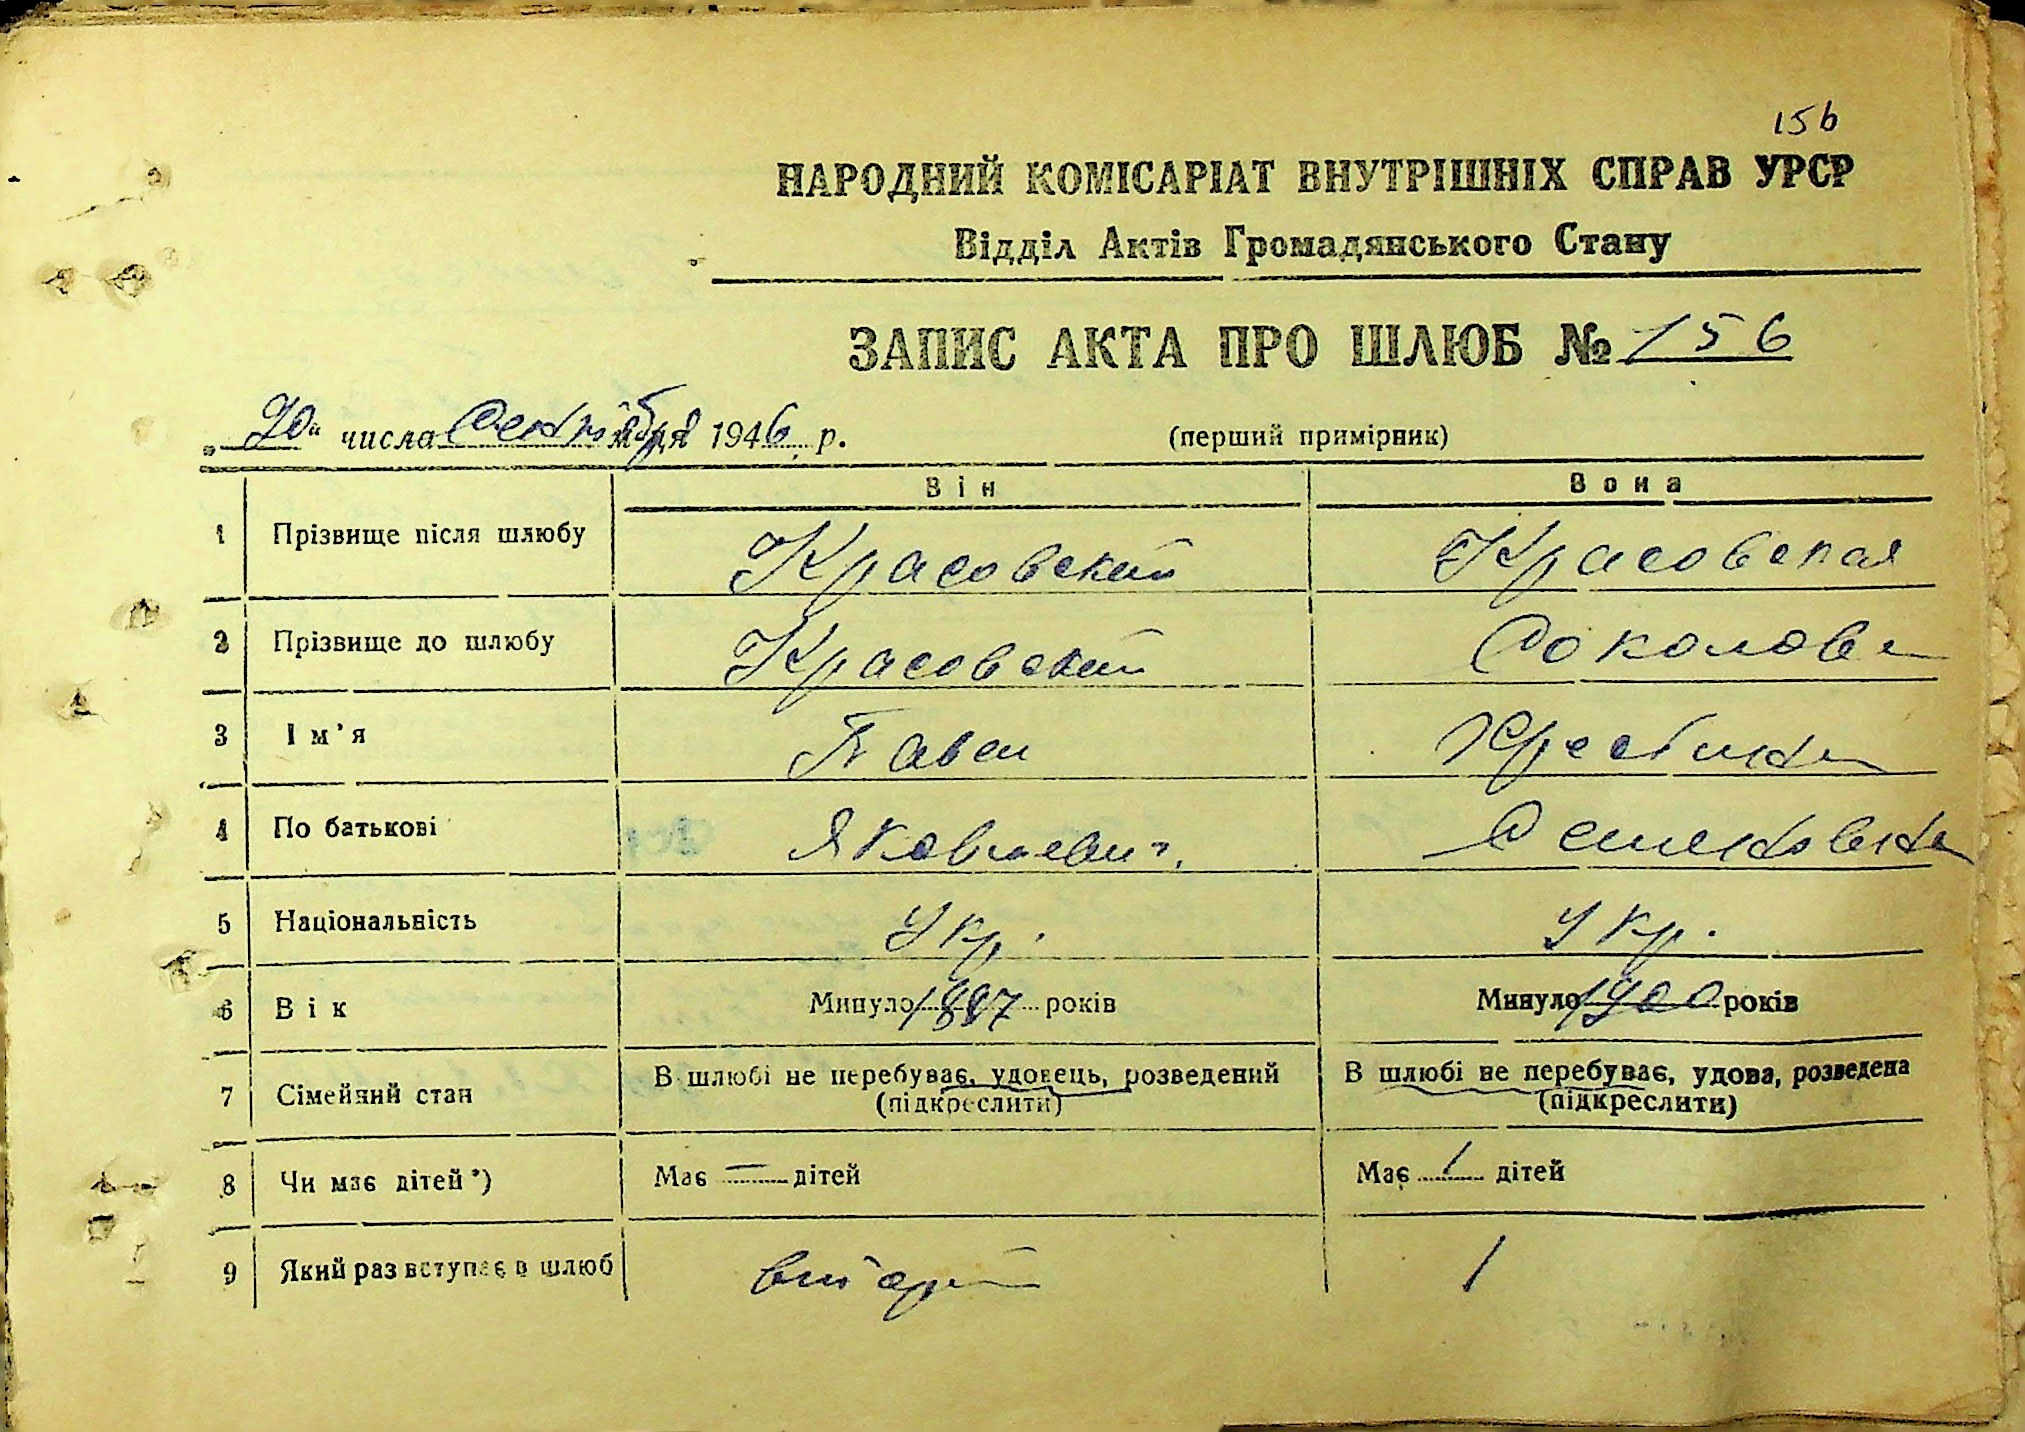 156
НАРОДНИЙ КОМІСАРІАТ ВНУТРІШНІХ СПРАВ УРСР
Відділ Актів Громадянського Стану
ЗАПИС АКТА ПРО ШЛЮБ № 156
„20" числа Сентября м-ця 1946 р. (перший примірник)
Він Вона
1 Прізвище після шлюбу Красовский Красовская
2 Прізвище до шлюбу Красовский Соколова
3 Ім'я Павел
4 По батькові Яковлевич. Семеновна
5 Національність Укр. Укр.
6 Вік Минуло 1887 років Минуло 1900 років
7 Сімейний стан В шлюбі не перебуває, удовець, розведений (підкреслити) В шлюбі не перебуває, удова, розведена (підкреслити)
8 Чи має дітей*) Має — дітей Має 1 дітей
9 Який раз вступає в шлюб 1